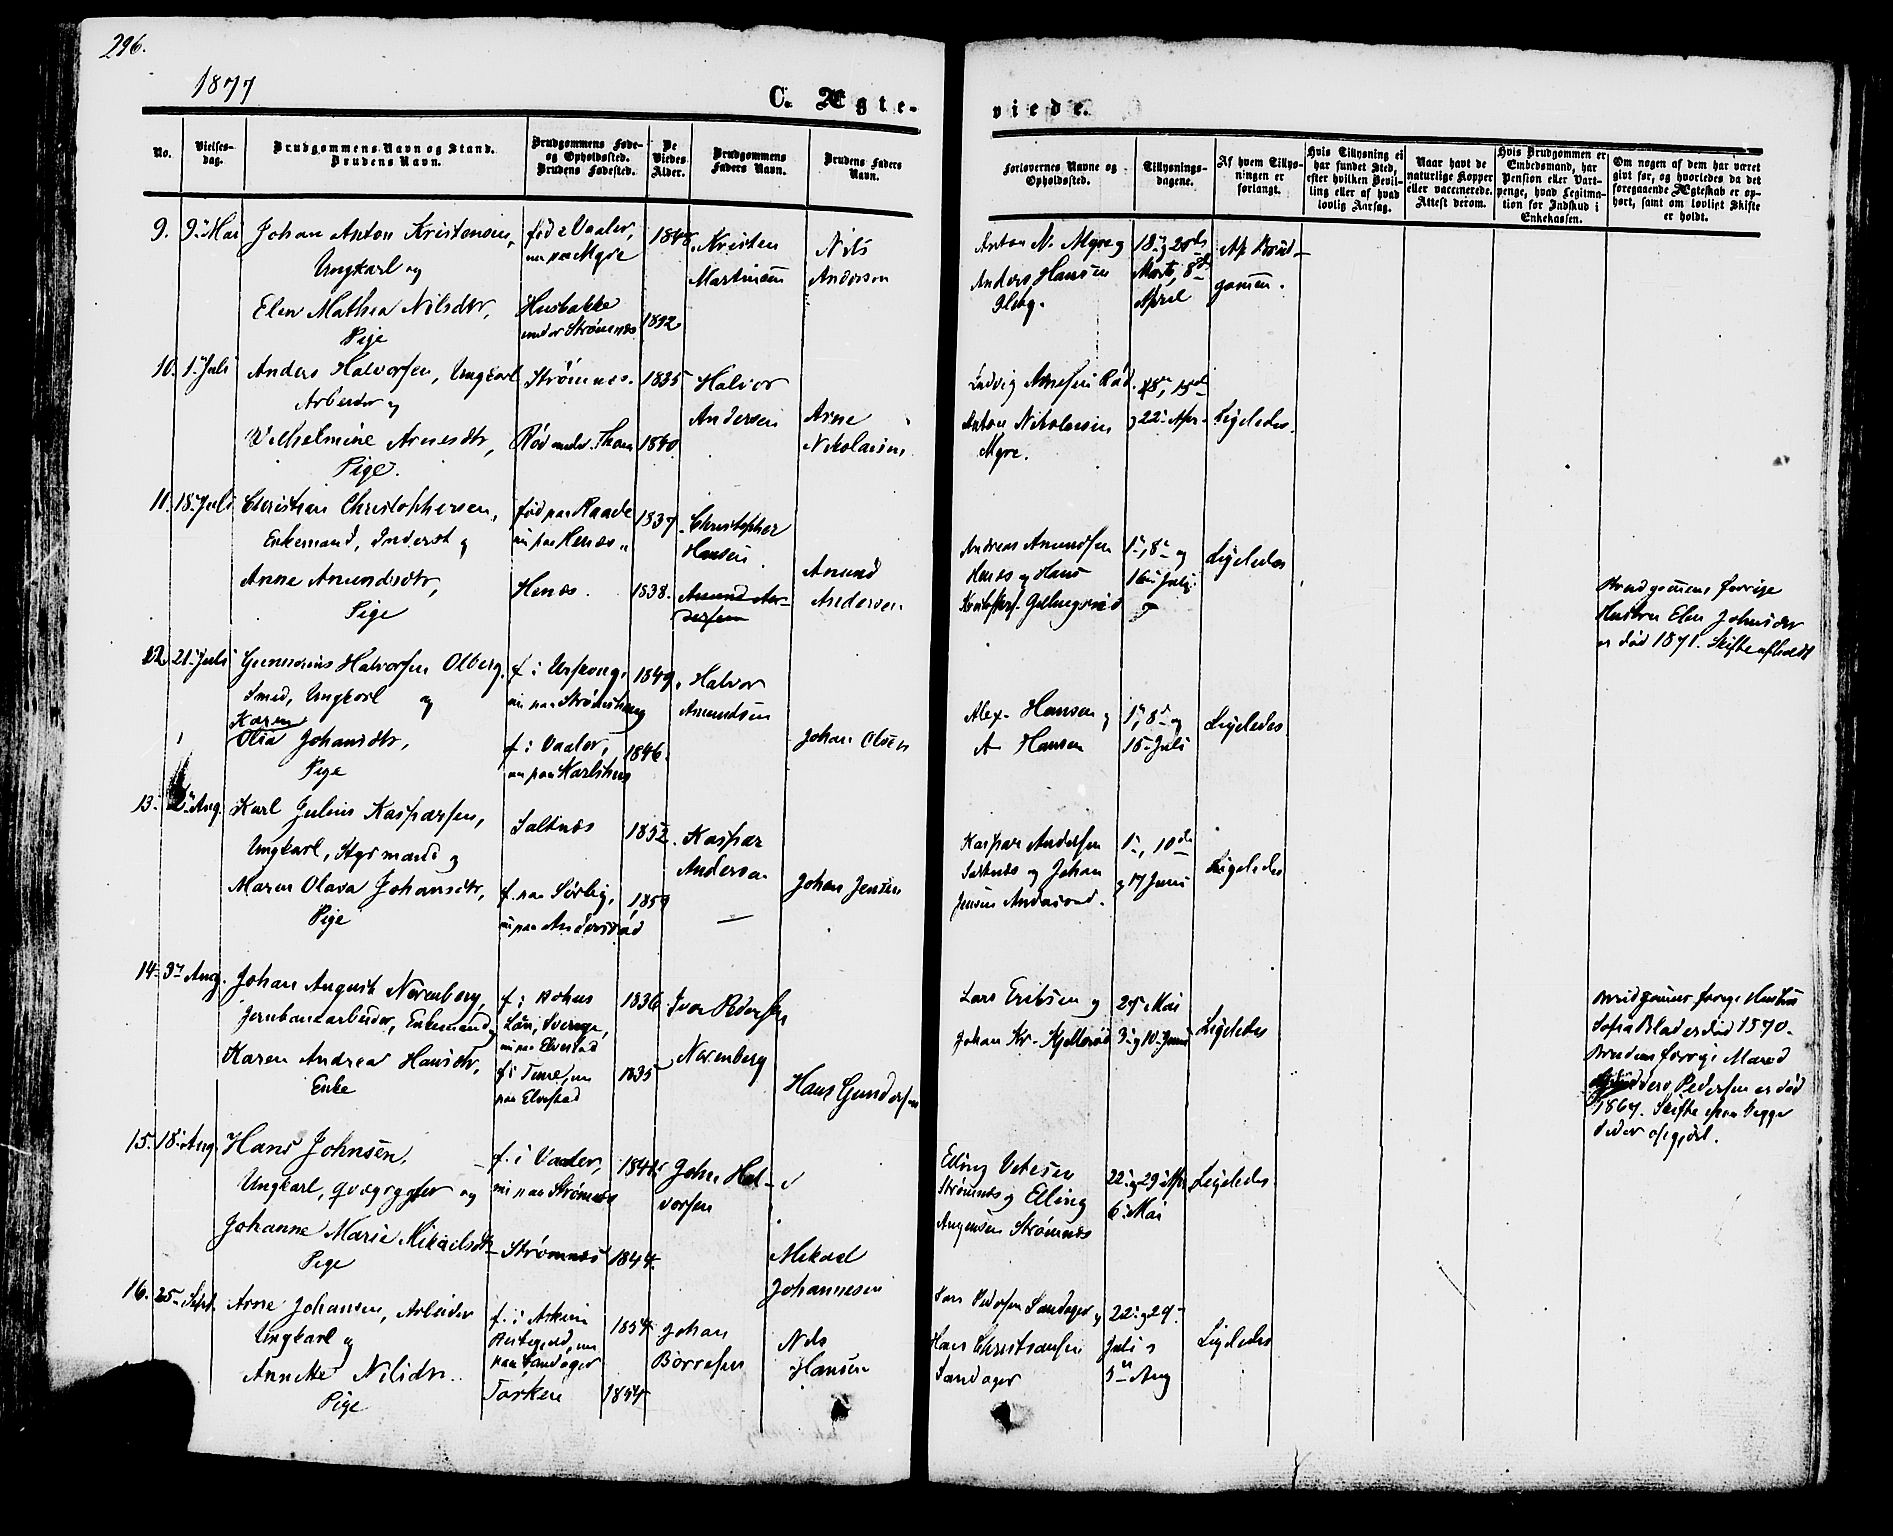 296.
1877
C. Ægte-
viede.
No.
Vielses-
dag.
Brudgommens Navn og Stand.
Brudens Navn.
Brudgommens Føde-
og Opholdssted.
Brudens Fødested.
De
Viedes
Alder.
Brudgommens
Faders Navn.
Brudens Faders
Navn.
Forlovernes Navne og
Opholdssted.
Tillysnings-
dagene.
Af hvem Tillys-
ningen er
forlangt.
Hvis Tillysning ei
har fundet Sted,
efter hvilken Bevil-
ling eller af hvad
lovlig Aarsag.
Naar havt de
naturlige Kopper
eller vaccinerede.
Attest derom.
Hvis Brudgommen er
Embedsmand, har
Pension eller Vart-
penge, hvad Legitima-
tion for Indskud i
Enkekassen.
Om nogen af dem har været
gift før, og hvorledes da det
foregaaende Ægteskab er op-
hørt, samt om lovligt Skifte
er holdt.
9. 9 Mai Johan Anton Kristensen,
Ungkarl og
Elen Mathea Nilsdtr,
Pige
fød i Vaaler,
nu paa Myre
Husbakke
under Strømnæs
1832
Kristen
Martinsen
Nils
Anderson
Anton N. Myre og
Anders Hansen
18 og 25de
Marts, 8de
April
Af Brud-
gommen.
10. 1 Juli Anders Halvorsen, Ungkarl
Arbeider og
Vilhelmine Arnesdtr,
Pige.
Strømnes.
Rød under Thom
1835
1840
Halvor
Andersen
Arne
Nikolaisen
Ludvig Arnesen Rød
Anton Nikolaisen
Myre.
og 22 Apr.
Ligeledes.
11. 18 Juli Christian Christophersen,
Enkemand, Inderst og
Anne Amundsdtr,
Pige
fød paa Raade
nu paa Henæs
Henæs.
1837
1838.
Christopher
Hansen
Amund An-
dersen
Amund
Andersen
Andreas Amundsen
Henæs og Hans
1, 8 og
Juli
Ligeledes
Brudgommens forrige
Hustru Elen Johnsdtr
er død 1871. Skifte afholdt
12. 21 Juli Gunnerius Halvorsen Olberg,
Smed, Ungkarl og
Karen
Olia Johansdtr,
Pige
f. i Urskoug,
nu paa
f. i Vaaler,
nu paa Karlshus
1849
1846.
Halvor
Amundsen
Johan Olsen
Alex. Hansen og
A Hansen
1, 8 og
15 Juli
Ligeledes
13. Aug. Karl Julius Kaspersen,
Ungkarl, Styrmand og
Maren Olava Johansdtr,
Pige
Saltnæs
f. paa Sørby,
nu paa Anderstad
1852.
1859
Kaspar
Andersen
—
Johan Jensen
Kaspar Andersen
Saltnæs og Johan
Jensen
1, 10de
og 17 Juni
Ligeledes
14. 3 Aug. Johan August Norenberg,
Jernbanearbeider, Enkemand
Karen Andrea Hansdtr,
Enke
f. i Bohus
Län, Sverige,
nu paa Elvestad
f. i Tune, nu
paa Elvestad
1836
1835
Ivar Pedersen
Norenberg
Hans Gundersen
Lars Eriksen og
Johan Kr. Kjellerød
27 Mai
3 og 10 Juni
Ligeledes
Brudgommens forrige Hustru
Sofia Blad er død 1870.
Brudens forrige Mand
Pedersen er død
1867. Skifte efter begge
15. 18 Aug. Hans Johnsen,
Ungkarl, og
Johanne Marie Mikaelsdtr
Pige
f. i Vaaler,
nu paa Strømnæs
Strømnæs
1844.
John Hal-
vorsen
Mikael
Johannesen
Elling
Strømnæs og Elling
Strømnæs
22 og 29 Apr
6 Mai
Ligeledes
16. 25 Sept. Arne Johansen, Arbeider
Ungkarl og
Annette Nilsdtr.
Pige
f. i Askim
Præstegjeld, nu
paa Sandager
Tasken
1854
1854
Johan
Børresen
Nils
Hansen
Lars Pedersen Sandager og
Hans Christiansen
Sandager
22 og 29
Juli og
5 Aug
Ligeledes